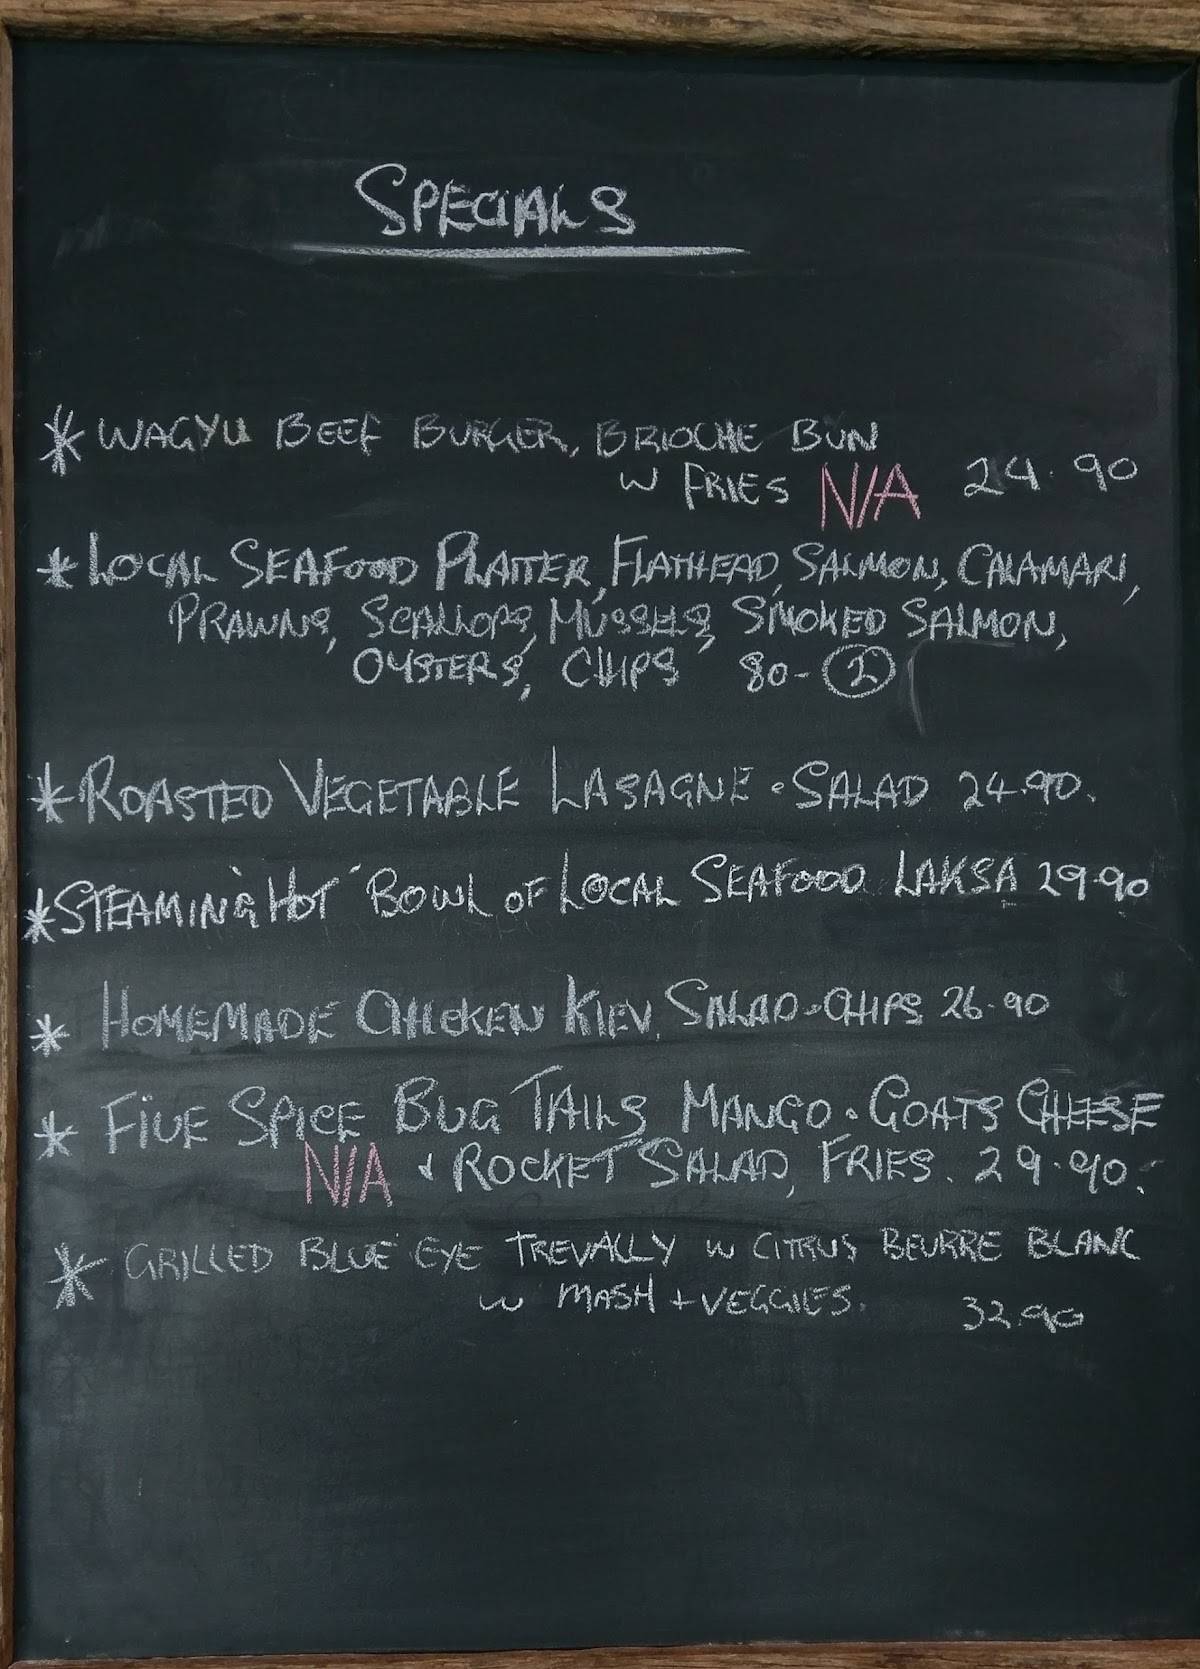 SPECIALS
* WAGYU BEEF BURGER, BRIOCHE BUN
w FRIES N/A 24.90
* LOCAL SEAFOOD PLATTER, FLATHEAD, SALMON, CALAMARI,
PRAWNS, SCALLOPS, MUSSELS, SMOKED SALMON,
OYSTERS, CHIPS 80- (2)
* ROASTED VEGETABLE LASAGNE • SALAD 24.90.
* STEAMING "HOT" BOWL OF LOCAL SEAFOOD LAKSA 29.90
* HOMEMADE CHICKEN KIEV, SALAD • CHIPS 26.90
* FIVE SPICE BUG TAILS MANGO • GOATS CHEESE
N/A + ROCKET SALAD, FRIES. 29.90.
* GRILLED BLUE EYE TREVALLY w CITRUS BEURRE BLANC
w MASH + VEGGIES. 32.90